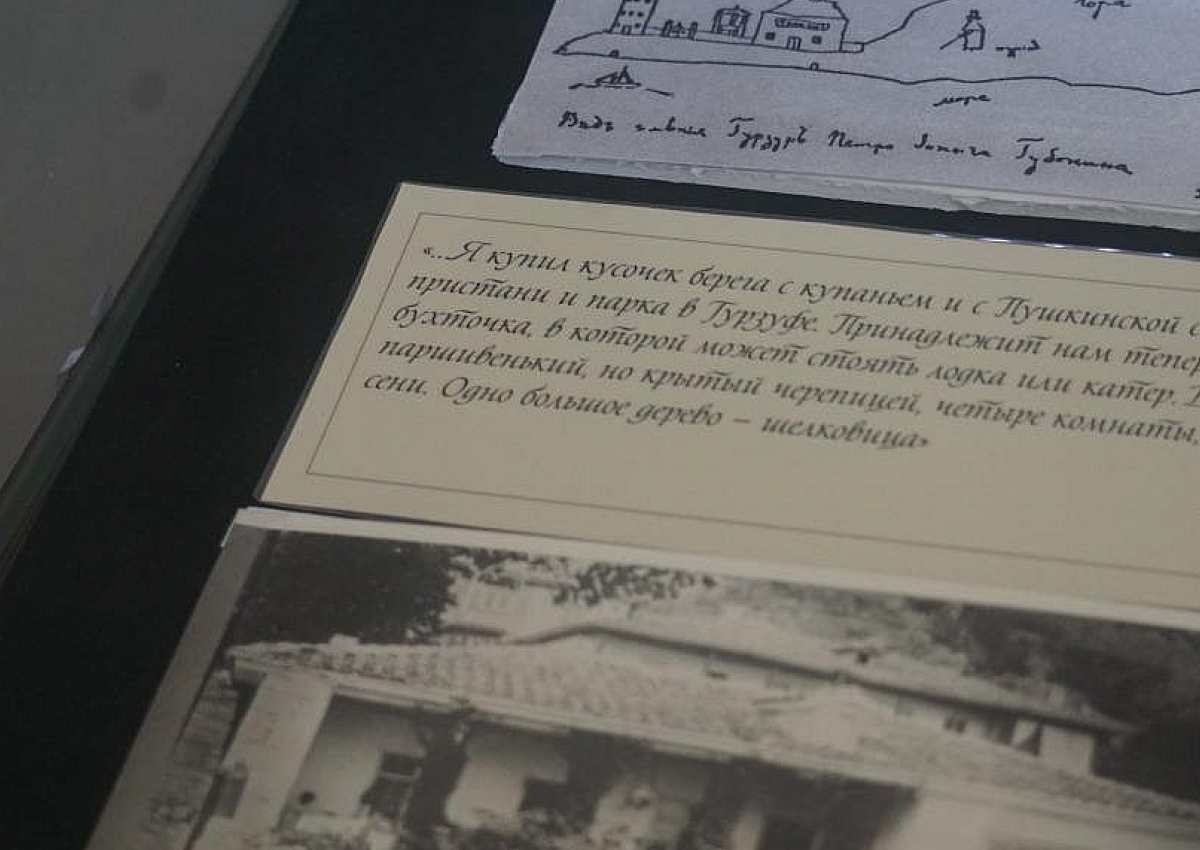 гора
море
Видъ имѣния Гурзуфъ Петра Ионыча Губонина
«...Я купил кусочек берега с купаньем и с Пушкинской с
пристани и парка в Гурзуфе. Принадлежит нам тепер
бухточка, в которой может стоять лодка или катер.
паршивенький, но крытый черепицей, четыре комнаты,
сени. Одно большое дерево – шелковица»